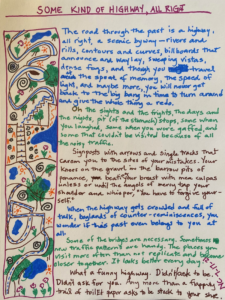 SOME KIND OF HIGHWAY, ALL RIGHT
The road through the past is a highway,
all right, a scenic byway—rivers and
rills, contours and curves, billboards that
announce and waylay, sweeping vistas,
dense fogs, and though you travel
at the speed of memory, the speed of
light, and maybe more, you will never get
back to the big bang in time to turn around
and give the whole thing a redo.
Oh the sights and the frights, the days and
the nights, pit (of the stomach) stops, some where
you laughed, some when you were and
some that couldn't be visited because of all
the noisy traffic.
Signposts with arrows and single tracks that
carry you to the sites of your mistakes. Your
knees on the gravel in the
penance, you beat your breast with
unless or until the angels of mercy tap your
shoulder and whisper, "You have to forgive your-
self."
When the highway gets crowded and full of
talk, of counter-reminiscences, you
wonder if the past even belongs to you at
all.
Some of the bridges are necessary. Sometimes
new traffic patterns are handy. The places you
visit more often than not replicate and
closer together. It looks better every day.
What a funny highway. Didn't ask to be.
Didn't ask for you. Any more than a
trail of toilet paper asks to be stuck to your shoe.